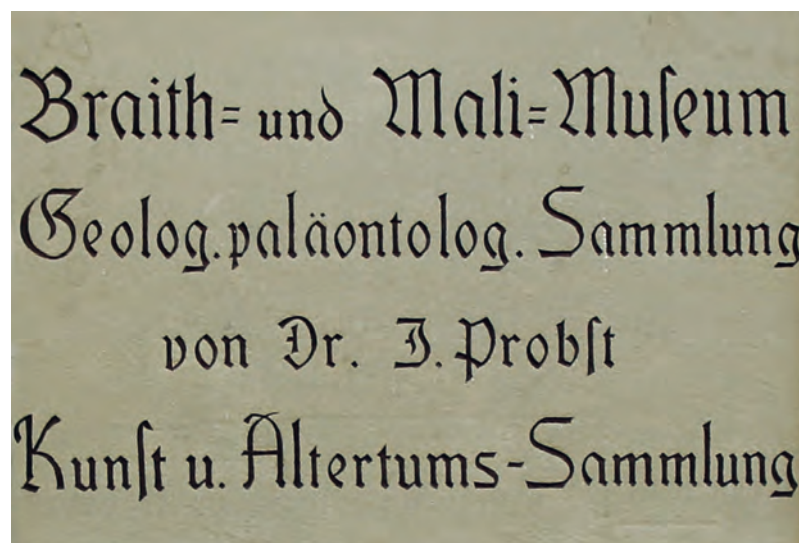 Braith= und Mali=Muſeum
Geolog. paläontolog. Sammlung
von Dr. J. Probſt
Kunſt u. Altertums-Sammlung